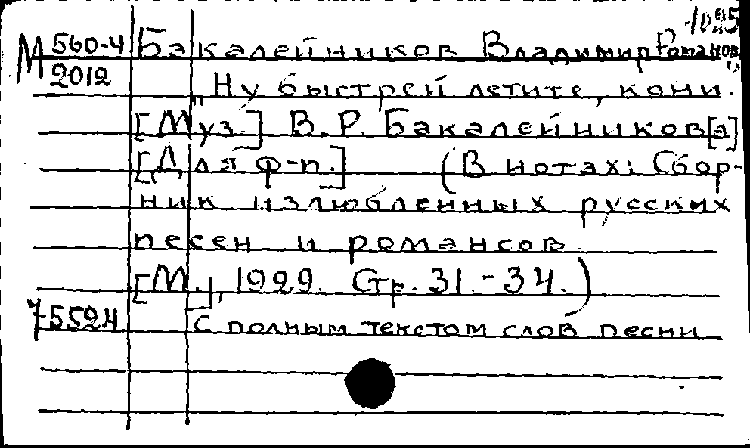 М 560-4 Бакалейников Владимир Романов.
2012 "Ну быстрей летите, кони."
[Муз.] В.Р. Бакалейников[а]
[Для ф-п.] (В нотах: Сбор-
ник излюбленных русских
песен и романсов.
[М.], 1929. Стр. 31.-34.)
75524 С полным текстом слов песни